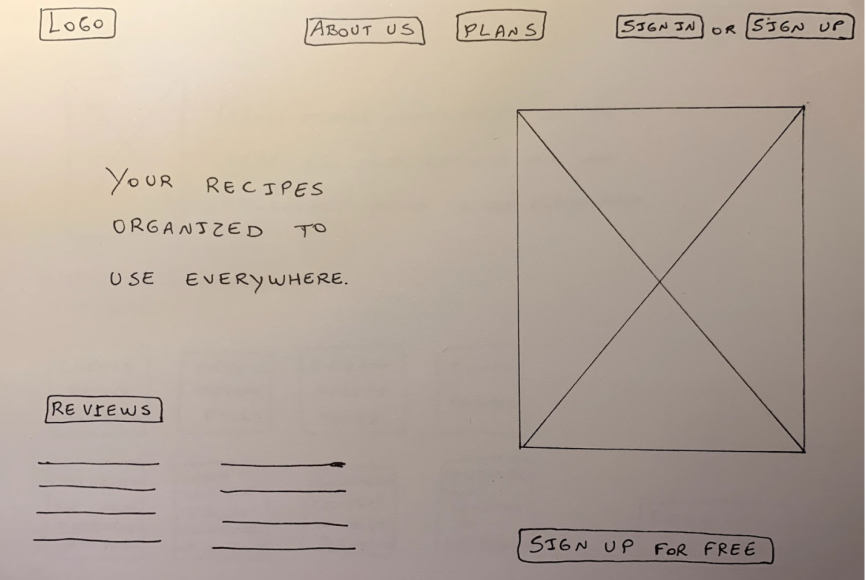 LOGO
ABOUT US
PLANS
SIGN IN OR SIGN UP
YOUR RECIPES
ORGANIZED TO
USE EVERYWHERE.
REVIEWS
SIGN UP FOR FREE